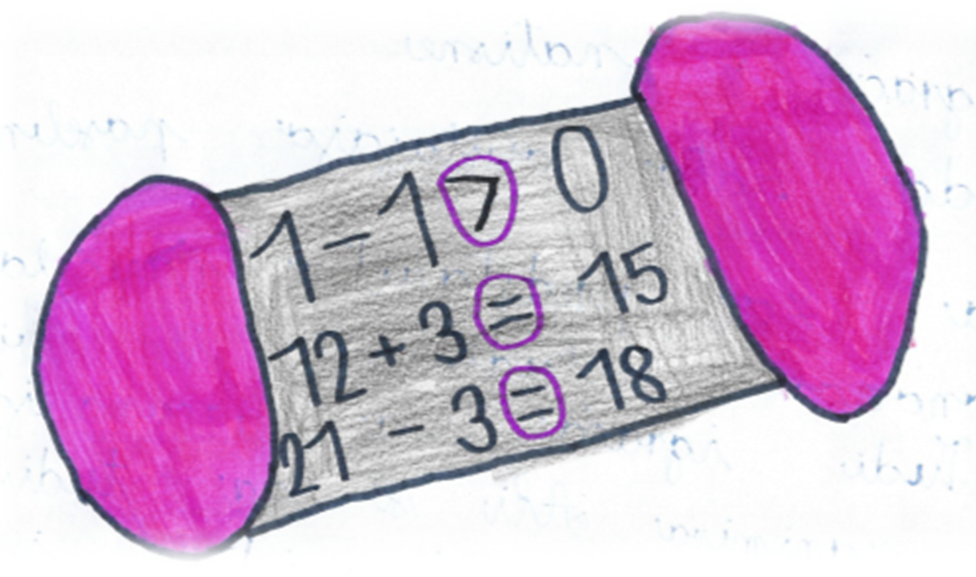 1 - 1 > 0
12 + 3 = 15
21 - 3 = 18